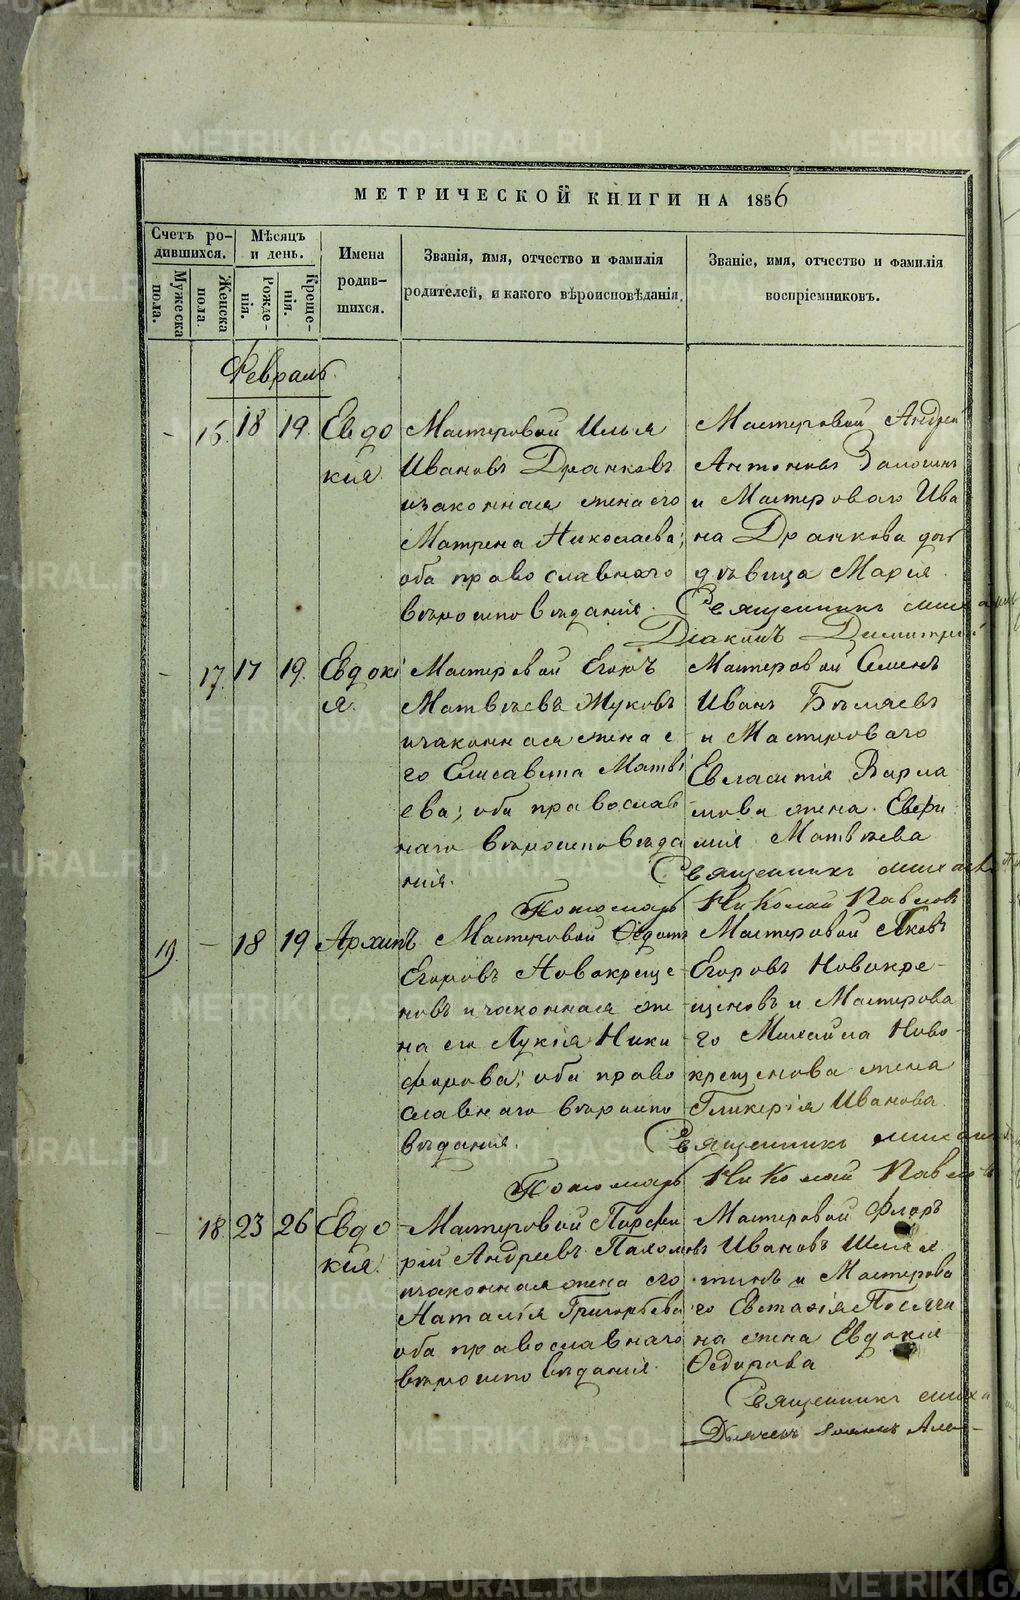 МЕТРИЧЕСКОЙ КНИГИ НА 1856
Счетъ ро-
дившихся.
Мѣсяцъ
и день.
Имена
родив-
шихся.
Званія, имя, отчество и фамилія
родителей, и какого вѣроисповѣданія.
Званіе, имя, отчество и фамилія
воспріемниковъ.
Мужеска
пола.
Женска
пола.
Рожде-
нія.
Креще-
нія.
Февраль
- 16. 18 19. Евдо
кия.
Мастеровой Илья
Ивановъ Дранковъ
и законная жена его
Матрена Николаева;
оба православнаго
вѣроисповѣданія.
Мастеровой Андрей
Антоновъ
и Мастероваго Ива
на Дранкова дочь
дѣвица Марія.
Священникъ
Діаконъ Димитрій
- 17. 17 19. Евдокі
я.
Мастеровой Егоръ
Матвѣевъ Жуковъ
и законная жена е
го Елисавета Матвѣ
ева; оба православ
наго вѣроисповѣда
нія.
Мастеровой Семенъ
Иванъ Бѣляевъ
и Мастероваго
Евласитія Варла
мова жена Евфи
мия Матвѣева
Священникъ
Пономарь Николай Павловъ
19. - 18 19 Архипъ
Мастеровой Ѳедотъ
Егоровъ Новокреще-
новъ и законная же
на его Лукія Ники
форова; оба право
славнаго вѣроиспо
вѣданія.
Мастеровой Яковъ
Егоровъ Новокре-
щеновъ и Мастерова
го Михайла Ново-
крещенова жена
Гликерія Иванова.
Священникъ
Пономарь Николай Павловъ
- 18. 23 26 Евдо
кия.
Мастеровой Порфи
рій Андреевъ Пахомовъ
и законная жена его
Наталія Григорьева
оба православнаго
вѣроисповѣданія.
Мастеровой Флоръ
Ивановъ
и Мастерова
го
на жена Евдокия
Ѳедорова
Священникъ
Дьячекъ Іоаннъ
METRIKI.GASO-URAL.RU